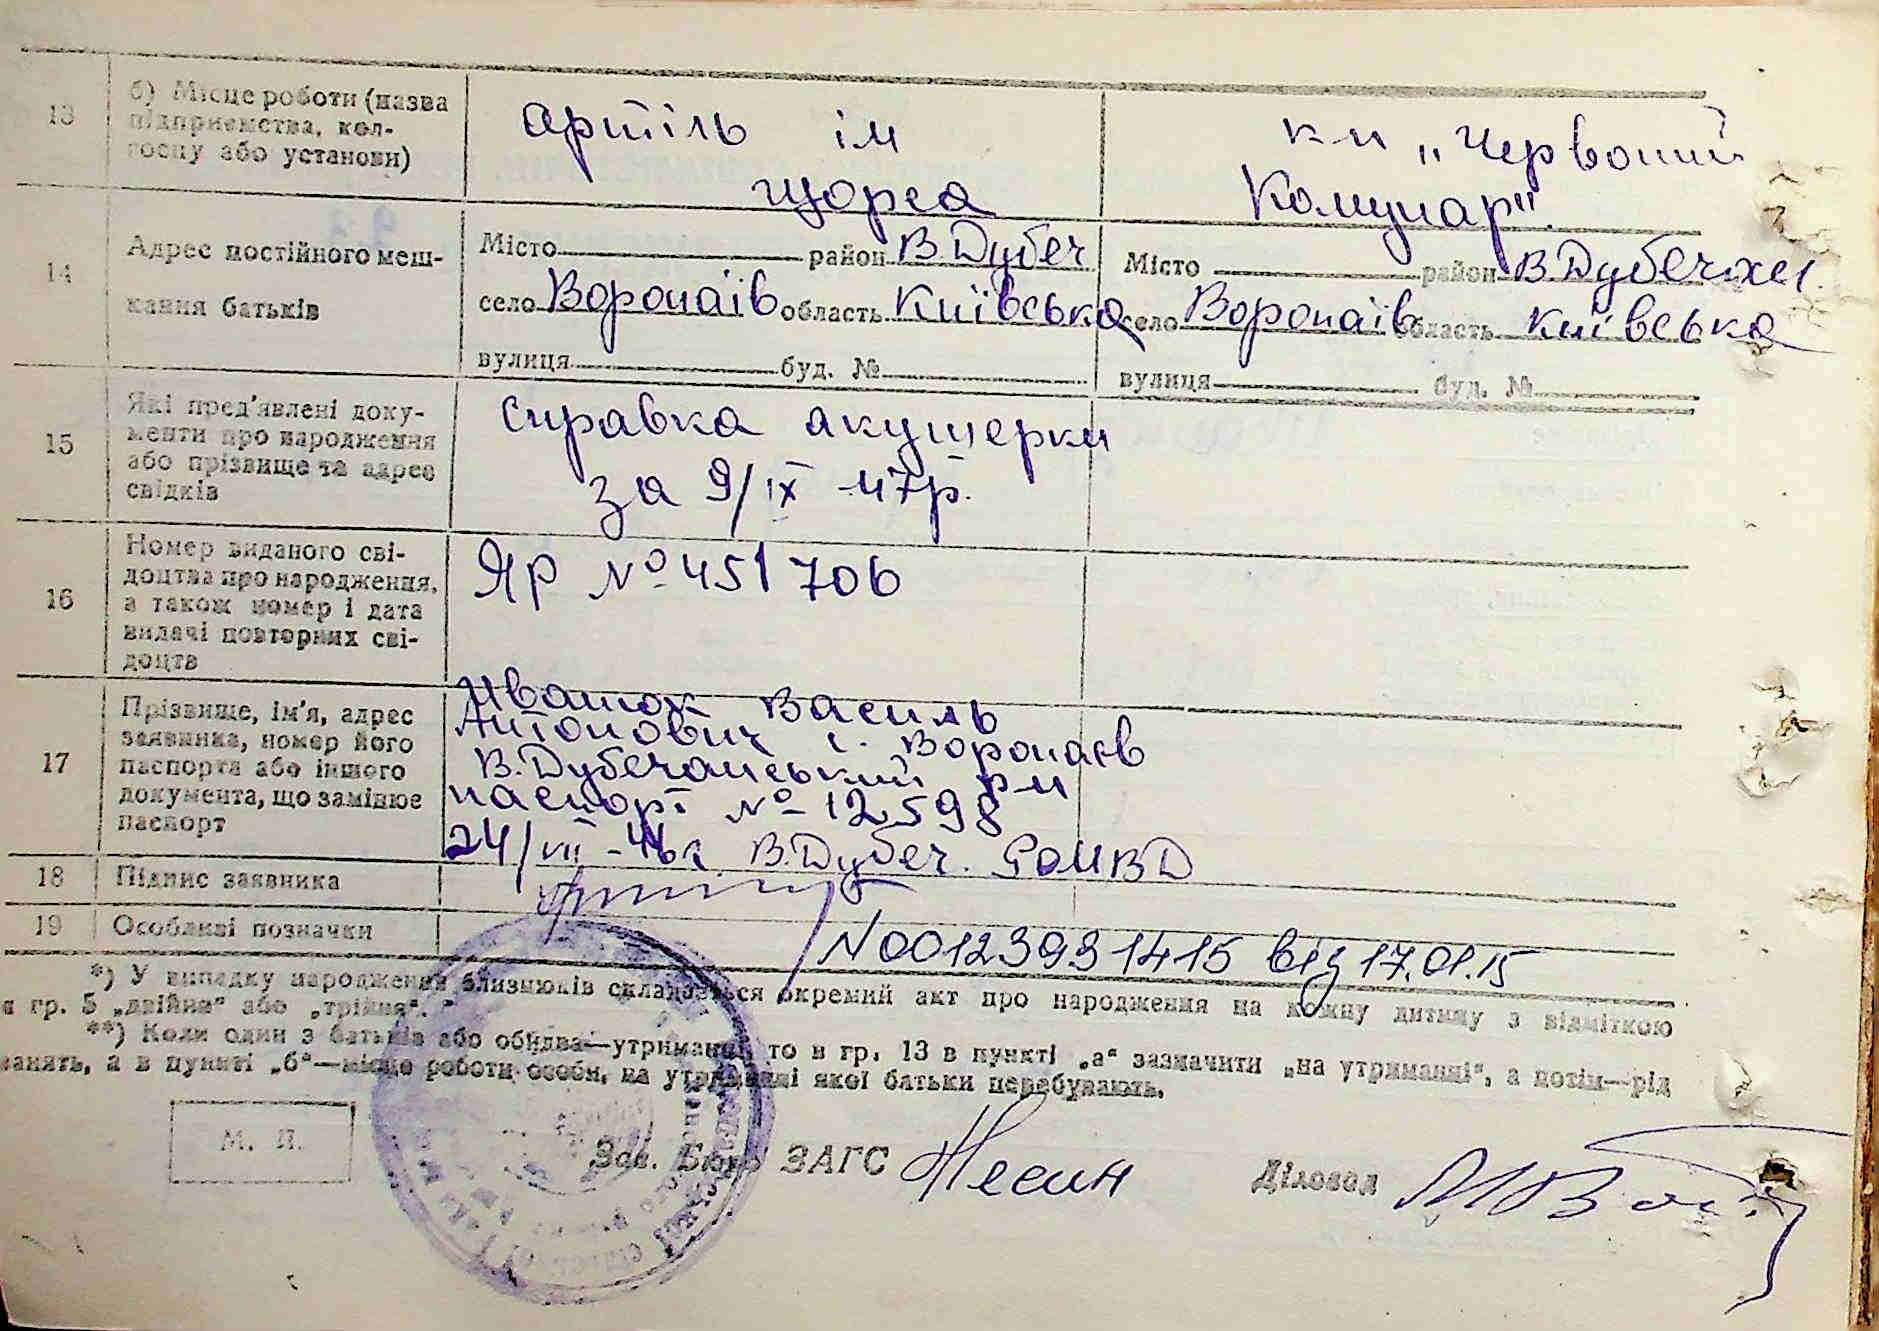 13 б) Місце роботи (назва підприємства, колгоспу або установи)
артіль ім
Щорса
к-п „Червоний
Комунар"
14 Адрес постійного мешкання батьків
Місто район В.Дубеч
село Воропаїв область Київська
вулиця буд. №
Місто район В.Дубечан.
село Воропаїв область Київська
вулиця буд. №
15 Які пред'явлені документи про народження або прізвище та адрес свідків
справка акушерки
за 9/IX-47р.
16 Номер виданого свідоцтва про народження, а також номер і дата видачі повторних свідоцтв
ЯР №451706
17 Прізвище, ім'я, адрес заявника, номер його паспорта або іншого документа, що замінює паспорт
Ивашок Василь
Антонович с. Воропаєв
В.Дубечанський рн
паспорт № 12598
24/VII-46г. В.Дубеч. РОМВД
18 Підпис заявника
19 Особливі позначки
N00123931415 від 17.01.15
*) У випадку народження близнюків складається окремий акт про народження на кожну дитину з відміткою
в гр. 5 „двійня" або „трійня".
**) Коли один з батьків або обидва—утриманці, то в гр. 13 в пункті „а" зазначити „на утриманні", а потім—рід
занять, а в пункті „б"—місце роботи особи, на утриманні якої батьки перебувають.
М. П.
Зав. Бюро ЗАГС
Діловод